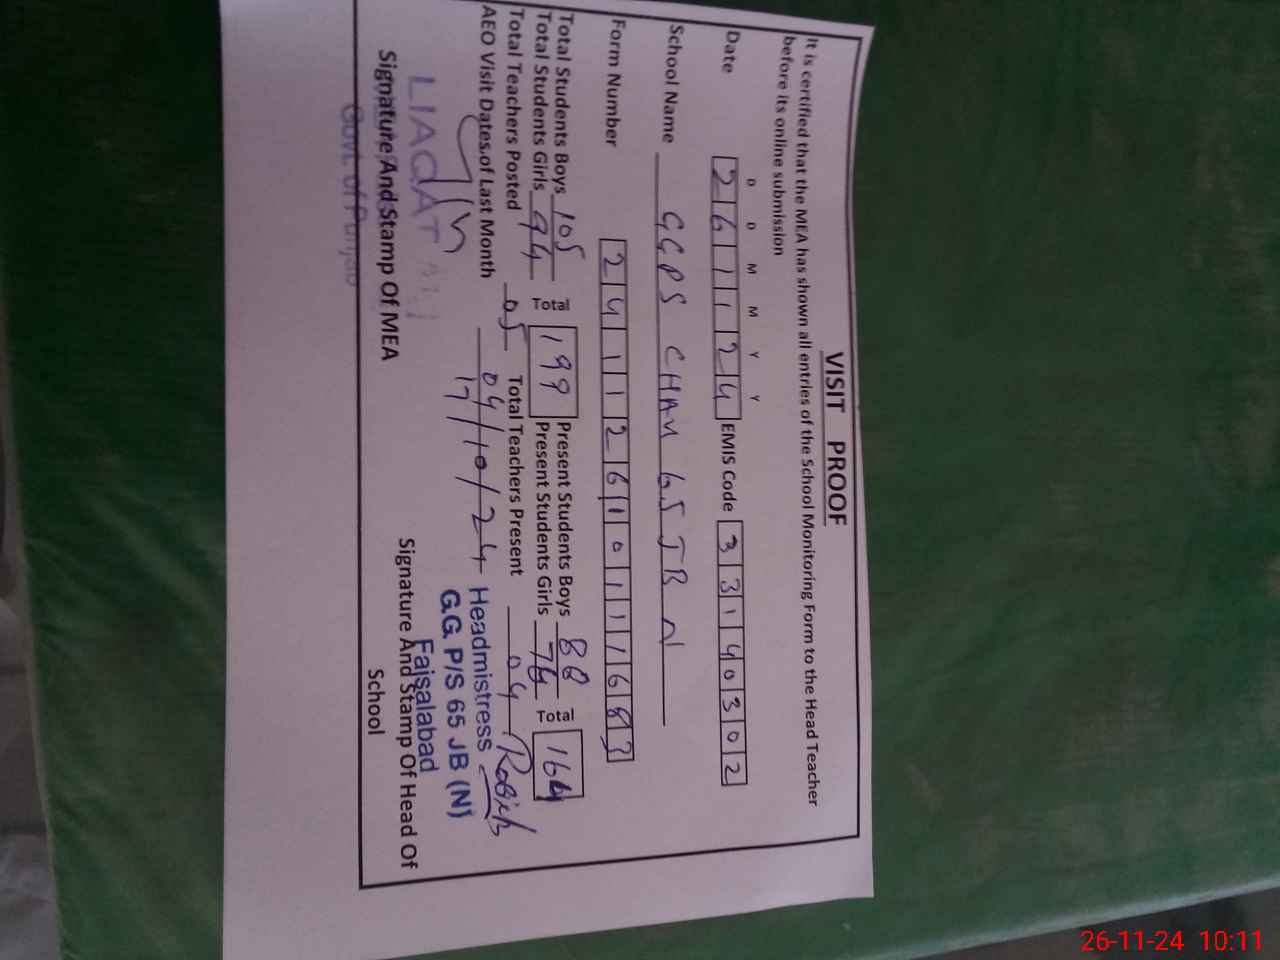 VISIT PROOF
It is certified that the MEA has shown all entries of the School Monitoring Form to the Head Teacher
before its online submission
D D M M Y Y
Date 26 11 24 EMIS Code 33140302
School Name GGPS CHAK 65 JB N
Form Number 2411126101116
Total Students Boys 105 Total 199 Present Students Boys 88 Total 164
Total Students Girls 94 Present Students Girls 76
Total Teachers Posted 05 Total Teachers Present 04
AEO Visit Dates of Last Month 04/10/24
17
LIAQAT
Signature And Stamp Of MEA
Govt. of Punjab
Headmistress
G.G. P/S 65 JB (N)
Faisalabad
Signature And Stamp Of Head Of
School
26-11-24 10:11